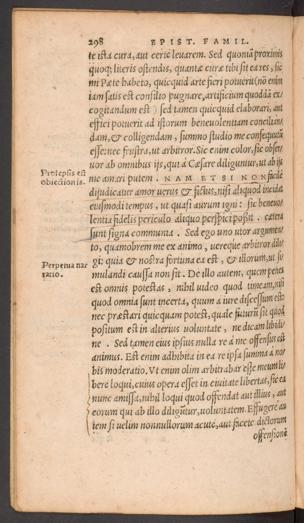 298 EPIST. FAMIL.
te ista cura, aut certè leuarem. Sed quoniã proximis
quoq; literis ostendis, quantæ curæ tibi sit ea res, sic
mi Pæte habeto, quicquid arte fieri potuerit (nõ enim
iam satis est consilio pugnare, artificium quoddã ex-
cogitandum est) sed tamen quicquid elaborari, aut
effici potuerit ad istorum beneuolentiam conciliãn-
dam, & colligendam, summo studio me consequutũ
esse: nec frustra, ut arbitror. Sic enim color, sic obser-
uor ab omnibus ijs, qui à Cæsare diliguntur, ut ab ijs
Protepsis est
obiectionis.
me amari putem. NAM ETSI NON facilè
dijudicatur amor uerus & fictus, nisi aliquod incidat
eiusmodi tempus, ut quasi aurum igni: sic beneuo-
lentia fidelis periculo aliquo perspici possit. cætera
sunt signa communia. Sed ego uno utor argumen-
to, quamobrem me ex animo, uereque arbitror dili-
Perpetua nar
ratio.
gi: quia & nostra fortuna ea est, & illorum, ut si-
mulandi caussa non sit. De illo autem, quem penes
est omnis potestas, nihil uideo quod timeam, nisi
quod omnia sunt incerta, quum à iure discessum est:
nec præstari quicquam potest, quale futurũ sit quod
positum est in alterius uoluntate, ne dicam libidi-
ne. Sed tamen eius ipsius nulla re à me offensus est
animus. Est enim adhibita in ea re ipsa summa à no-
bis moderatio. Vt enim olim arbitrabar esse meum li-
berè loqui, cuius opera esset in ciuitate libertas, sic ea
nunc amissa, nihil loqui quod offendat aut illius, aut
eorum qui ab illo diliguntur, uoluntatem. Effugere au-
tem si uelim nonnullorum acutè, aut facetè dictorum
offensionẽ